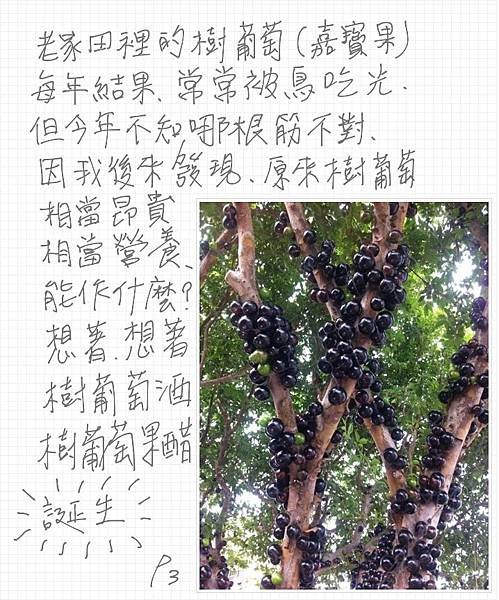 老家田裡的樹葡萄(嘉寶果)
每年結果、常常被鳥吃光.
但今年不知哪根筋不對、
因我後來發現、原來樹葡萄
相當昂貴
相當營養、
能作什麼?
想著.想著
樹葡萄酒
樹葡萄果醋
誕生
P3